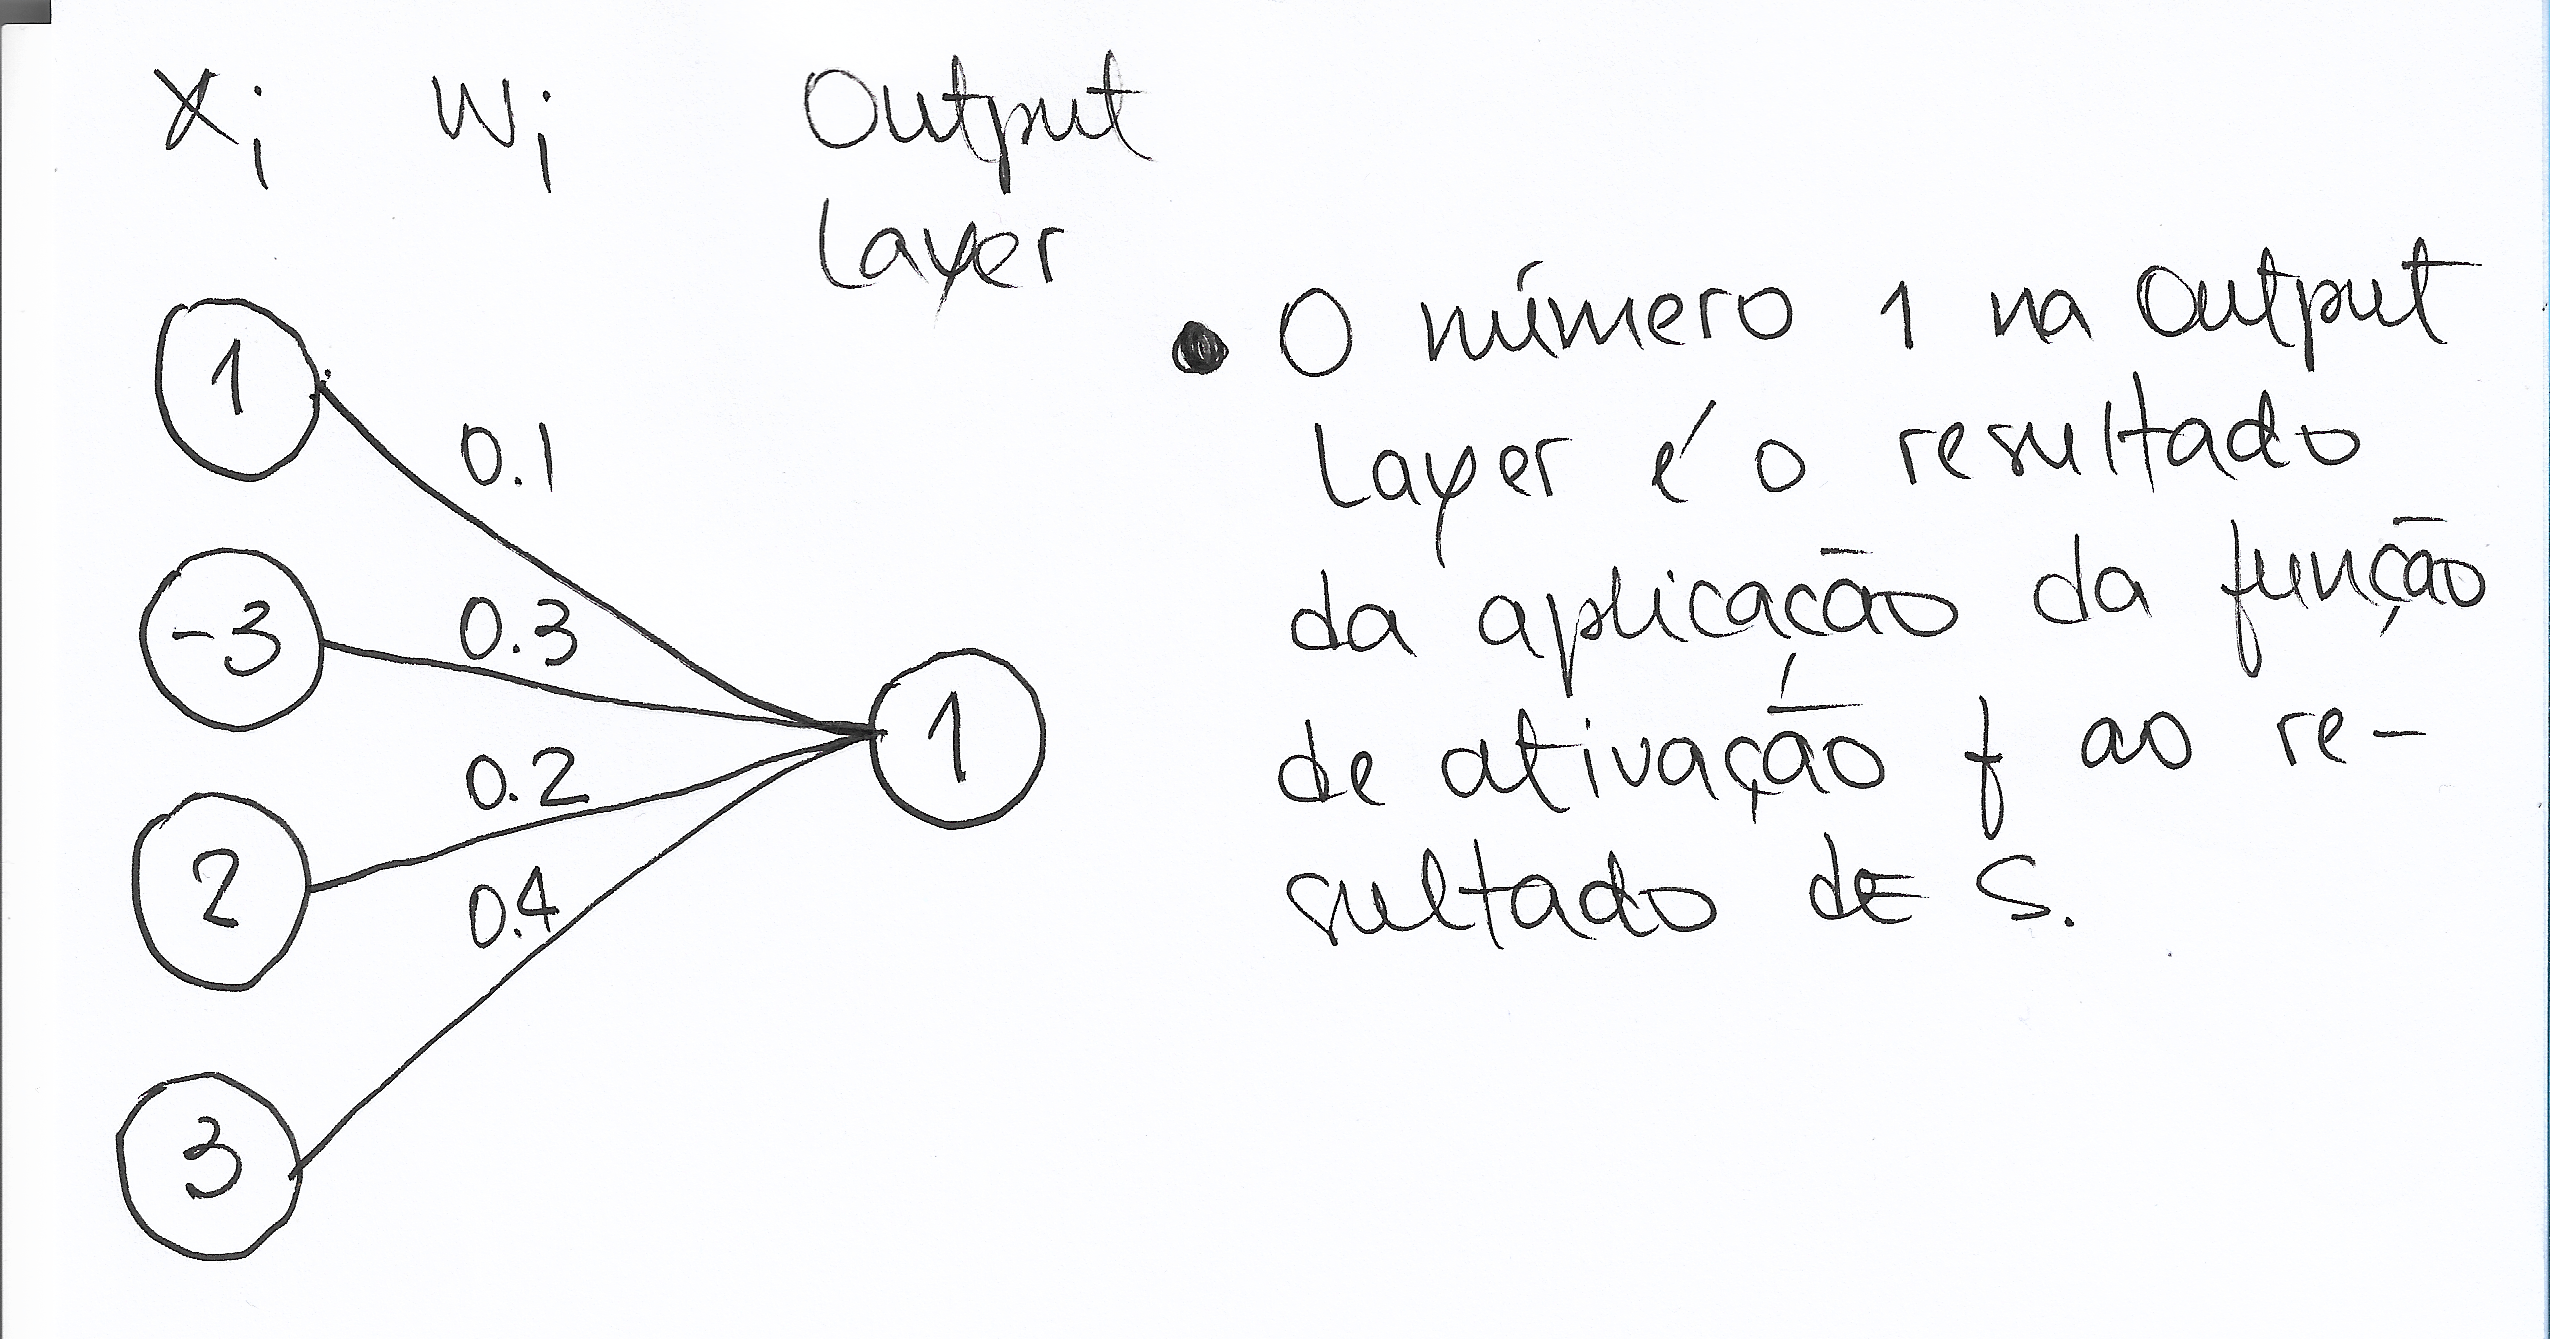 Xi Wi Output
Layer
1
0.1
-3
0.3
0.2
2
0.4
3
1
• O número 1 na Output
Layer é o resultado
da aplicação da função
de ativação f ao re-
sultado de S.